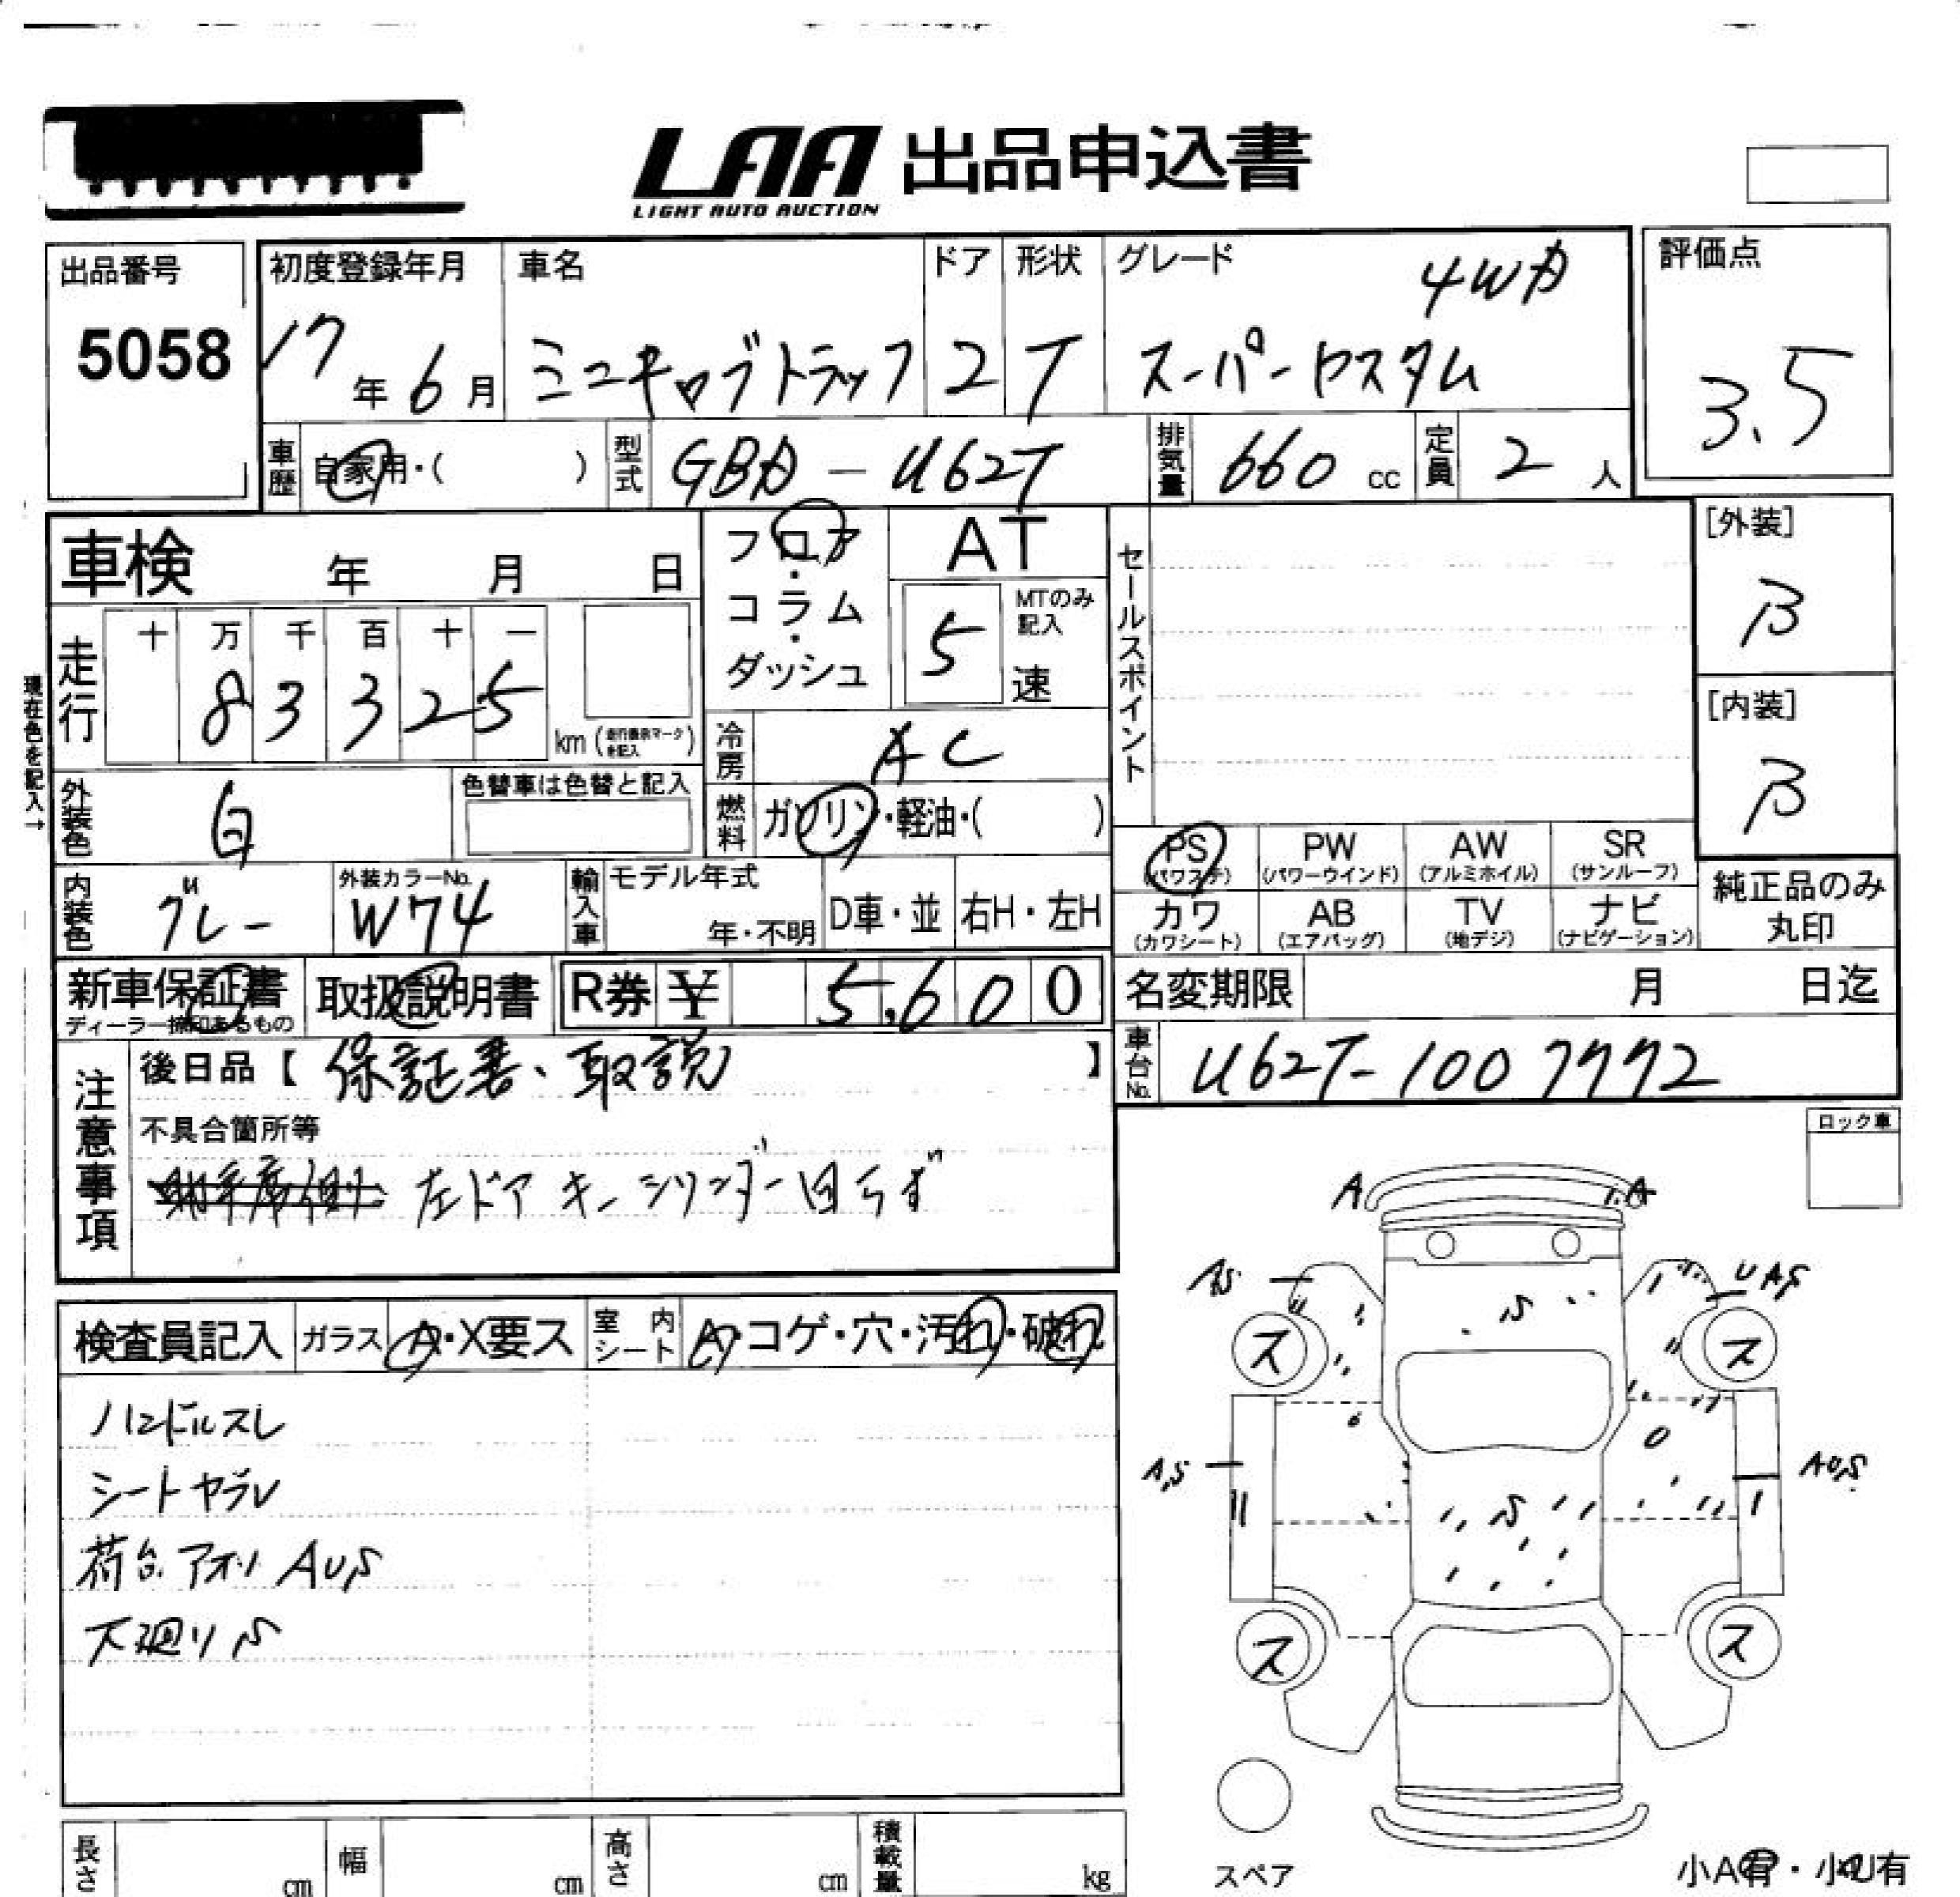 LAA 出品申込書
LIGHT AUTO AUCTION
出品番号
5058
初度登録年月
17年6月
車名
ミニキャブトラック
ドア
2
形状
T
グレード
4WD
スーパーカスタム
評価点
3.5
車歴 自家用・( )
型式 GBD-U62T
排気量 660 cc
定員 2 人
車検 年 月 日
フロア・コラム・ダッシュ
AT
5 速
MTのみ記入
セールスポイント
[外装]
B
[内装]
B
現在色を記入→
走行 十 万 千 百 十 一
8 3 3 2 5 km (走行表示マークを記入)
冷房 AC
外装色 白
色替車は色替と記入
燃料 ガソリン・軽油・( )
PS (パワステ) PW (パワーウインド) AW (アルミホイル) SR (サンルーフ)
カワ (カワシート) AB (エアバッグ) TV (地デジ) ナビ (ナビゲーション)
純正品のみ丸印
内装色 グレー
外装カラーNo. W74
輸入車 モデル年式 年・不明 D車・並 右H・左H
新車保証書
ディーラー捺印あるもの
取扱説明書
R券 ¥ 5,600
名変期限 月 日迄
注意事項
後日品【 保証書、取説 】
車台No. U62T-1007772
不具合箇所等
左ドア キーシリンダー回らず
ロック車
検査員記入 ガラス A・X要ス 室内シート A・コゲ・穴・汚れ・破れ
ハンドルスレ
シートヤブレ
荷台.アオリ AUS
下廻りS
A A
AS UAS
S
ス ス
AS AUS
S
ス ス
スペア
小A有・小U有
長さ cm 幅 cm 高さ cm 積載量 kg